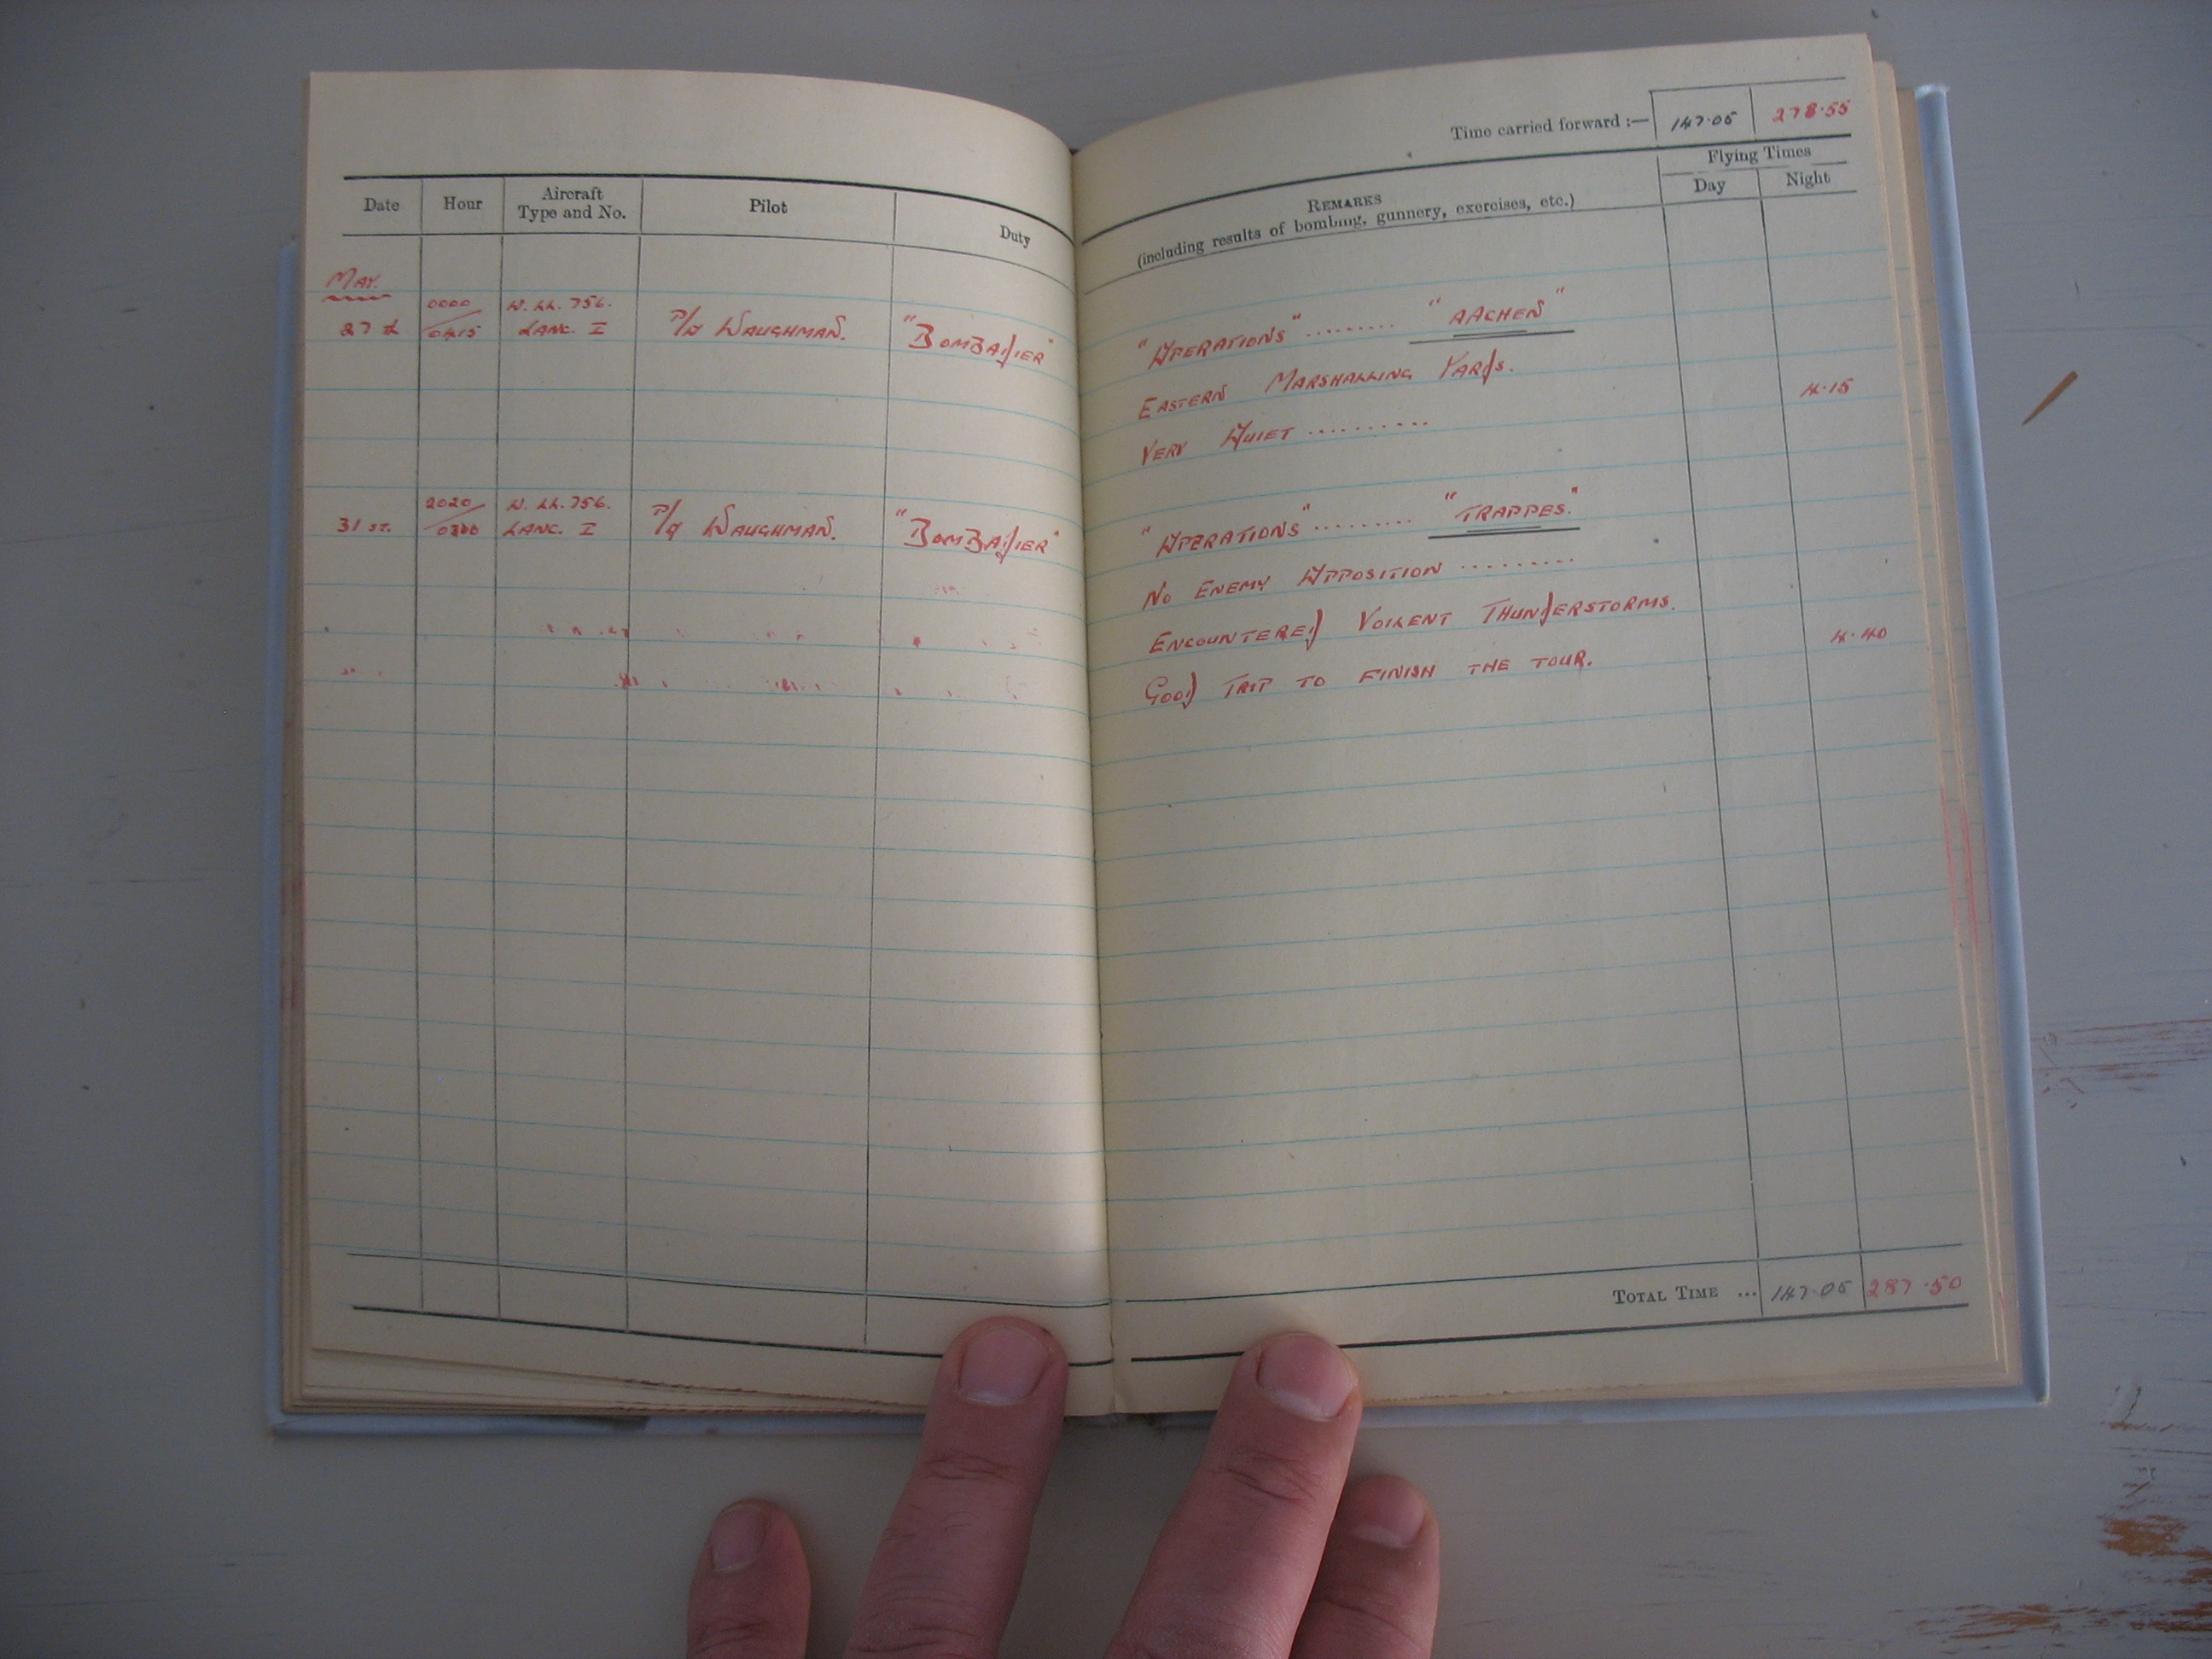 Time carried forward :— 147.05 278.55
Date Hour Aircraft Type and No. Pilot Duty
REMARKS
(including results of bombing, gunnery, exercises, etc.)
Flying Times
Day Night
MAY.
0000 W. LL. 756.
27th 0415 LANC. I P/O WAUGHMAN. "BOMBADIER"
"OPERATIONS" ......... "AACHEN"
EASTERN MARSHALLING YARDS.
4.15
VERY QUIET ..........
2020 W. LL. 756.
31 ST. 0300 LANC. I P/O WAUGHMAN. "BOMBADIER"
"OPERATIONS" ......... "TRAPPES."
NO ENEMY OPPOSITION .........
ENCOUNTERED VOILENT THUNDERSTORMS.
4.40
GOOD TRIP TO FINISH THE TOUR.
TOTAL TIME ... 147.05 287.50